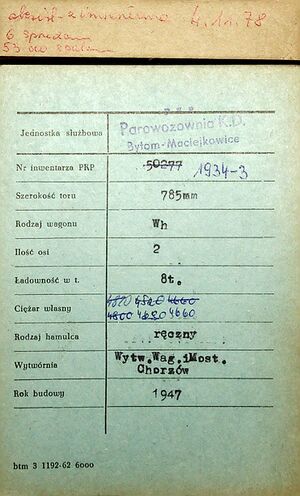 z inwentarza 4.1.78
6
53 do
P K P
Jednostka służbowa
Parowozownia K.D.
Bytom-Maciejkowice
Nr inwentarza PKP 50277 1934-3
Szerokość toru 785mm
Rodzaj wagonu Wh
Ilość osi 2
Ładowność w t. 8t.
Ciężar własny 4820 4820 4660
4800 4620 4660
Rodzaj hamulca ręczny
Wytwórnia Wytw.Wag.iMost.
Chorzów
Rok budowy 1947
btm 3 1192-62 6000